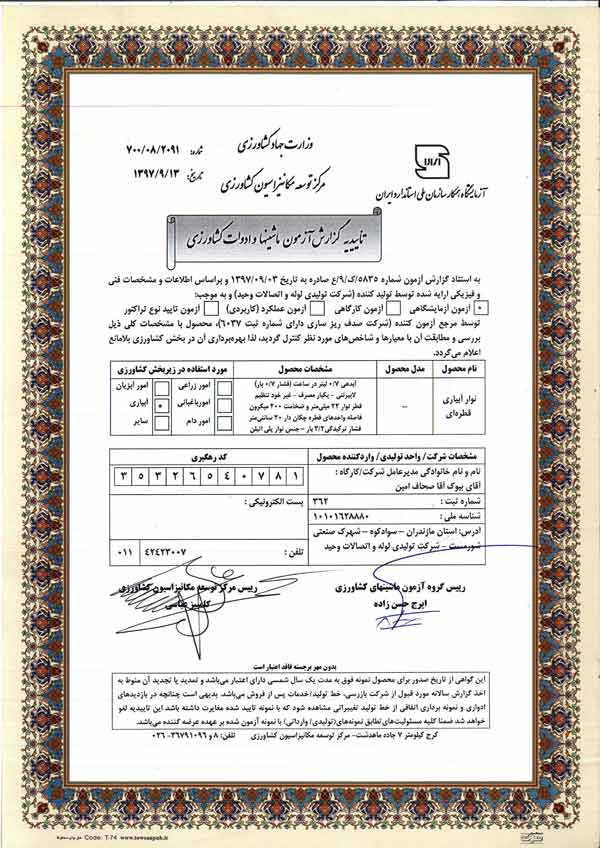 وزارت جهاد کشاورزی
شماره: ۷۰۰/۰۸/۲۰۹۱
مرکز توسعه مکانیزاسیون کشاورزی
تاریخ: ۱۳۹۷/۹/۱۳
آزمایشگاه همکار سازمان ملی استاندارد ایران
تاییدیه گزارش آزمون ماشینها و ادوات کشاورزی
به استناد گزارش آزمون شماره ۵۸۳۵/ک/۹/ع صادره به تاریخ ۱۳۹۷/۰۹/۰۳ و براساس اطلاعات و مشخصات فنی
و فیزیکی ارایه شده توسط تولید کننده (شرکت تولیدی لوله و اتصالات وحید) و به موجب:
* آزمون آزمایشگاهی آزمون کارگاهی آزمون عملکرد (کاربردی) آزمون تایید نوع تراکتور
توسط مرجع آزمون کننده (شرکت صدف ریز سازی دارای شماره ثبت ۶۰۳۷)، محصول با مشخصات کلی ذیل
بررسی و مطابقت آن با معیارها و شاخص‌های مورد نظر کنترل گردید، لذا بهره‌برداری آن در بخش کشاورزی بلامانع
اعلام می‌گردد.
نام محصول مدل محصول مشخصات محصول مورد استفاده در زیربخش کشاورزی
نوار آبیاری قطره‌ای
--
آبدهی ۰/۷ لیتر در ساعت (فشار ۰/۷ بار)
لابیرنتی - یکبار مصرف - غیر خود تنظیم
قطر نوار ۲۲ میلی‌متر و ضخامت ۲۰۰ میکرون
فاصله واحدهای قطره چکان دار ۲۰ سانتی‌متر
فشار ترکیدگی ۳/۲ بار - جنس نوار پلی اتیلن
امور زراعی امور آبزیان
امور باغبانی آبیاری *
امور دام سایر
مشخصات شرکت/ واحد تولیدی/ واردکننده محصول
کد رهگیری
نام و نام خانوادگی مدیرعامل شرکت/کارگاه:
آقای بیوک آقا صحاف امین
۳ ۵ ۳ ۲ ۶ ۵ ۴ ۰ ۷ ۸ ۱
شماره ثبت: ۳۶۲
پست الکترونیکی:
شناسه ملی: ۱۰۱۰۱۶۲۸۸۸۰
آدرس: استان مازندران - سوادکوه - شهرک صنعتی
شورمست - شرکت تولیدی لوله و اتصالات وحید
تلفن: ۴۲۴۲۳۰۰۷ ۰۱۱
رییس گروه آزمون ماشینهای کشاورزی
ایرج حسن زاده
رییس مرکز توسعه مکانیزاسیون کشاورزی
کامبیز عباسی
بدون مهر برجسته فاقد اعتبار است
این گواهی از تاریخ صدور برای محصول نمونه فوق به مدت یک سال شمسی دارای اعتبار می‌باشد و تمدید یا تجدید آن منوط به
اخذ گزارش سالانه مورد قبول از شرکت بازرسی، خط تولید/خدمات پس از فروش می‌باشد. بدیهی است چنانچه در بازدیدهای
ادواری و نمونه برداری اتفاقی از خط تولید تغییراتی مشاهده شود که با نمونه تایید شده مغایرت داشته باشد این تاییدیه لغو
خواهد شد ضمنا کلیه مسئولیت‌های تطابق نمونه‌های (تولیدی/ وارداتی) با نمونه آزمون شده بر عهده عرضه کننده می‌باشد.
کرج کیلومتر ۷ جاده ماهدشت- مرکز توسعه مکانیزاسیون کشاورزی تلفن: ۸ و ۳۶۷۹۱۰۹۶- ۰۲۶
Code: T-74 www.towsanpub.ir